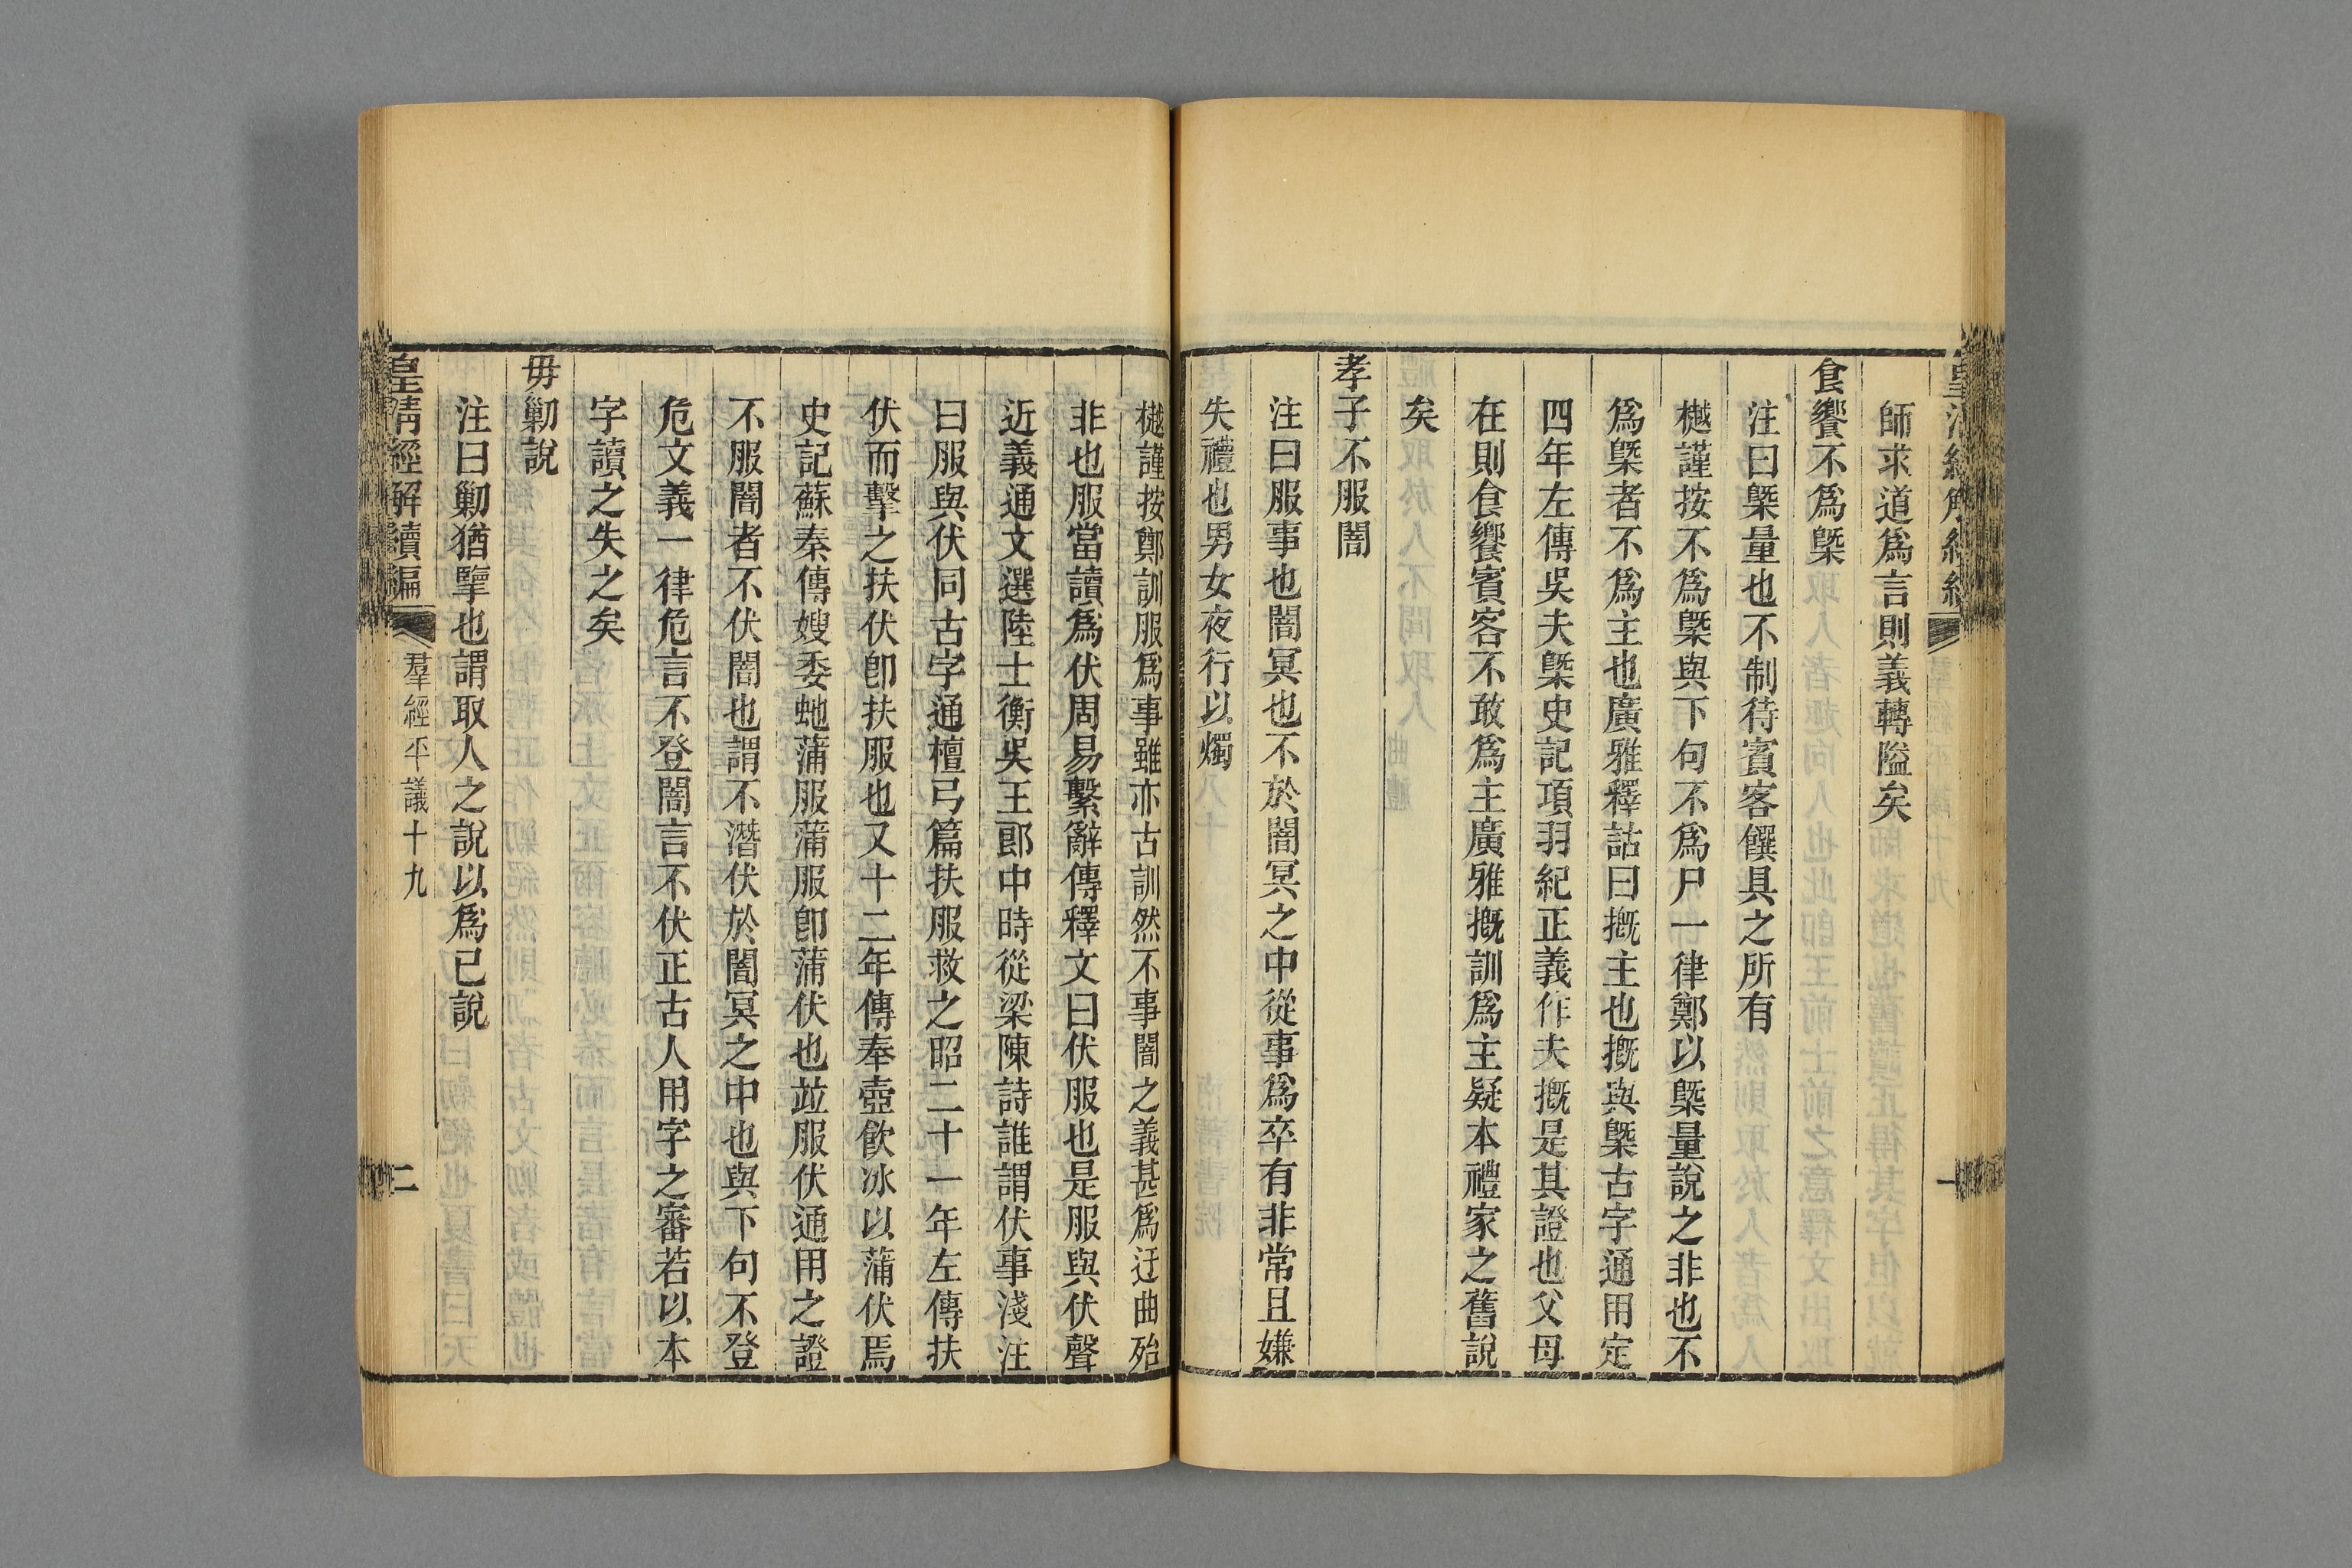 師求道爲言則義轉隘矣
食饗不爲槩
注曰槩量也不制待賓客饌具之所有
樾謹按不爲槩與下句不爲尸一律鄭以槩量說之非也不
爲槩者不爲主也廣雅釋詁曰摡主也摡與槩古字通用定
四年左傳吳夫槩史記項羽紀正義作夫摡是其證也父母
在則食饗賓客不敢爲主廣雅摡訓爲主疑本禮家之舊說
矣
孝子不服闇
注曰服事也闇冥也不於闇冥之中從事爲卒有非常且嫌
失禮也男女夜行以燭
樾謹按鄭訓服爲事雖亦古訓然不事闇之義甚爲迂曲殆
非也服當讀爲伏周易繫辭傳釋文曰伏服也是服與伏聲
近義通文選陸士衡吳王郎中時從梁陳詩誰謂伏事淺注
曰服與伏同古字通檀弓篇扶服救之昭二十一年左傳扶
伏而擊之扶伏卽扶服也又十二年傳奉壺飮冰以蒲伏焉
史記蘇秦傳嫂委虵蒲服蒲服卽蒲伏也竝服伏通用之證
不服闇者不伏闇也謂不潛伏於闇冥之中也與下句不登
危文義一律危言不登闇言不伏正古人用字之審若以本
字讀之失之矣
毋勦說
注曰勦猶擥也謂取人之說以爲已說
皇淸經解續編
羣經平議十九
二